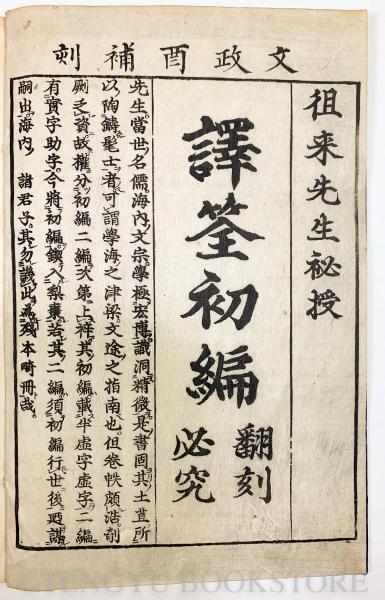 文政酉補刻
徂来先生秘授
譯筌初編
翻刻
必究
先生當世名儒海內文宗學極宏博識洞精微是書固其土苴所
以陶鑄髦士者可謂學海之津梁文途之指南也但卷帙頗浩剞
劂乏資故權分初編二編次第上梓其初編載半虛字虛字二編
有實字助字今將初編鍥入梨棗若其二編須初編行世後迺謀
嗣出海內 諸君子其勿譏此為殘本畸冊哉
CHENGYU BOOKSTORE